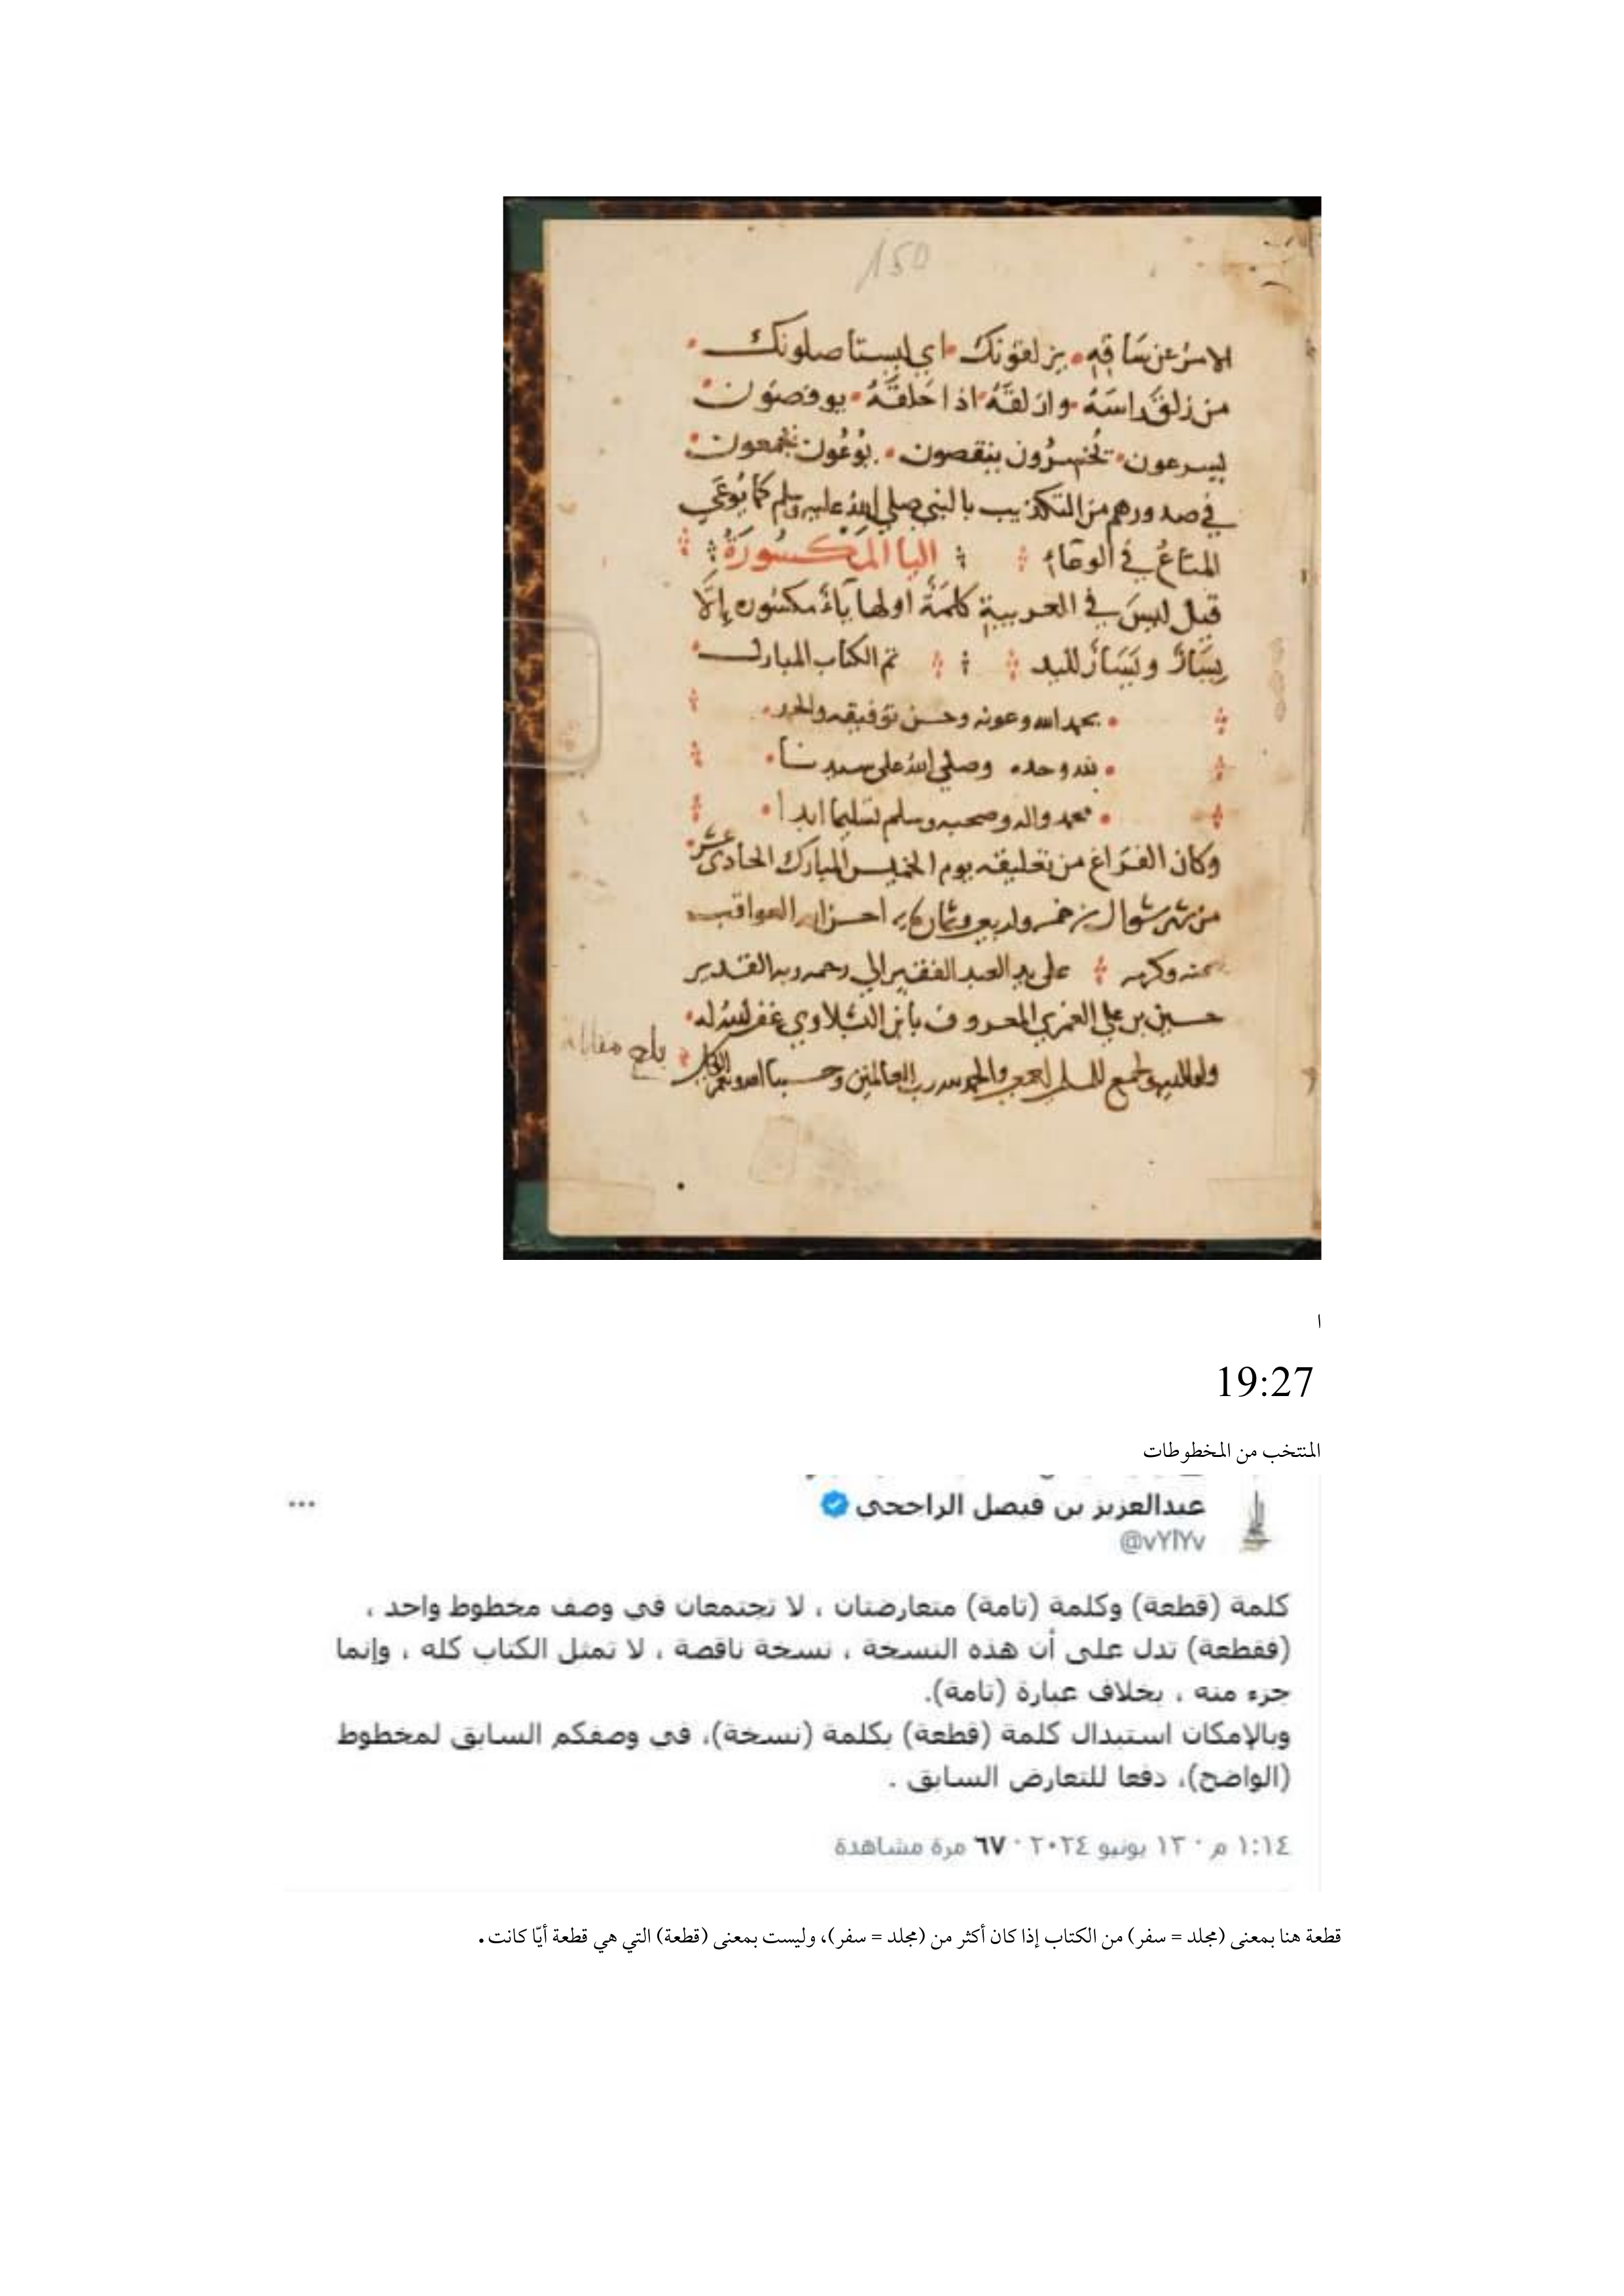 150
الامر عن ساقه • يزلقونك • اي ليستاصلونك •
من زلق راسَهُ • وازلقهُ • اذا حَلقهُ • يوفضون •
يسرعون • تُخسِرُون ينقصون • يُوعُون يجمعون •
في صدورهم من التكذيب بالنبي صلي الله عليه وسلم كما يُوعَي
المتاعُ في الوعاءِ اليا المكسُورَةُ
قيل ليسَ في العربيةِ كلمَةٌ اولها ياءٌ مكسُوره اِلَّا
يِسَارٌ ويَسَارٌ لليد تم الكتاب المبارك •
• بحمد الله وعونه وحسن توفيقه والحمد •
• لله وحده وصلي الله على سيدنا •
• محمد واله وصحبه وسلم تسليما ابدا •
وكان الفراغ من تعليقه يوم الخميس المبارك الحادى عشر •
من شهر شوال خمس واربعين وثمان العواقب
بمنه وكرمه على يد العبد الفقير الي رحمه ربه القدير
حسين بن علي الغمري المعروف بابن الشلاوي غفر الله له •
ولوالديه ولجميع المسلمين والحمد لله رب العالمين وحسبنا الله ونعم الوكيل
بلغ مقابلة
ا
19:27
المنتخب من المخطوطات
عبدالعزيز بن فيصل الراجحي
@v٢١٢v
كلمة (قطعة) وكلمة (تامة) متعارضتان ، لا تجتمعان في وصف مخطوط واحد ،
(فقطعة) تدل على أن هذه النسخة ، نسخة ناقصة ، لا تمثل الكتاب كله ، وإنما
جزء منه ، بخلاف عبارة (تامة).
وبالإمكان استبدال كلمة (قطعة) بكلمة (نسخة)، في وصفكم السابق لمخطوط
(الواضح)، دفعا للتعارض السابق .
١:١٤ م · ١٣ يونيو ٢٠٢٤ · ٦٧ مرة مشاهدة
قطعة هنا بمعنى (مجلد = سفر) من الكتاب إذا كان أكثر من (مجلد = سفر)، وليست بمعنى (قطعة) التي هي قطعة أيّا كانت.